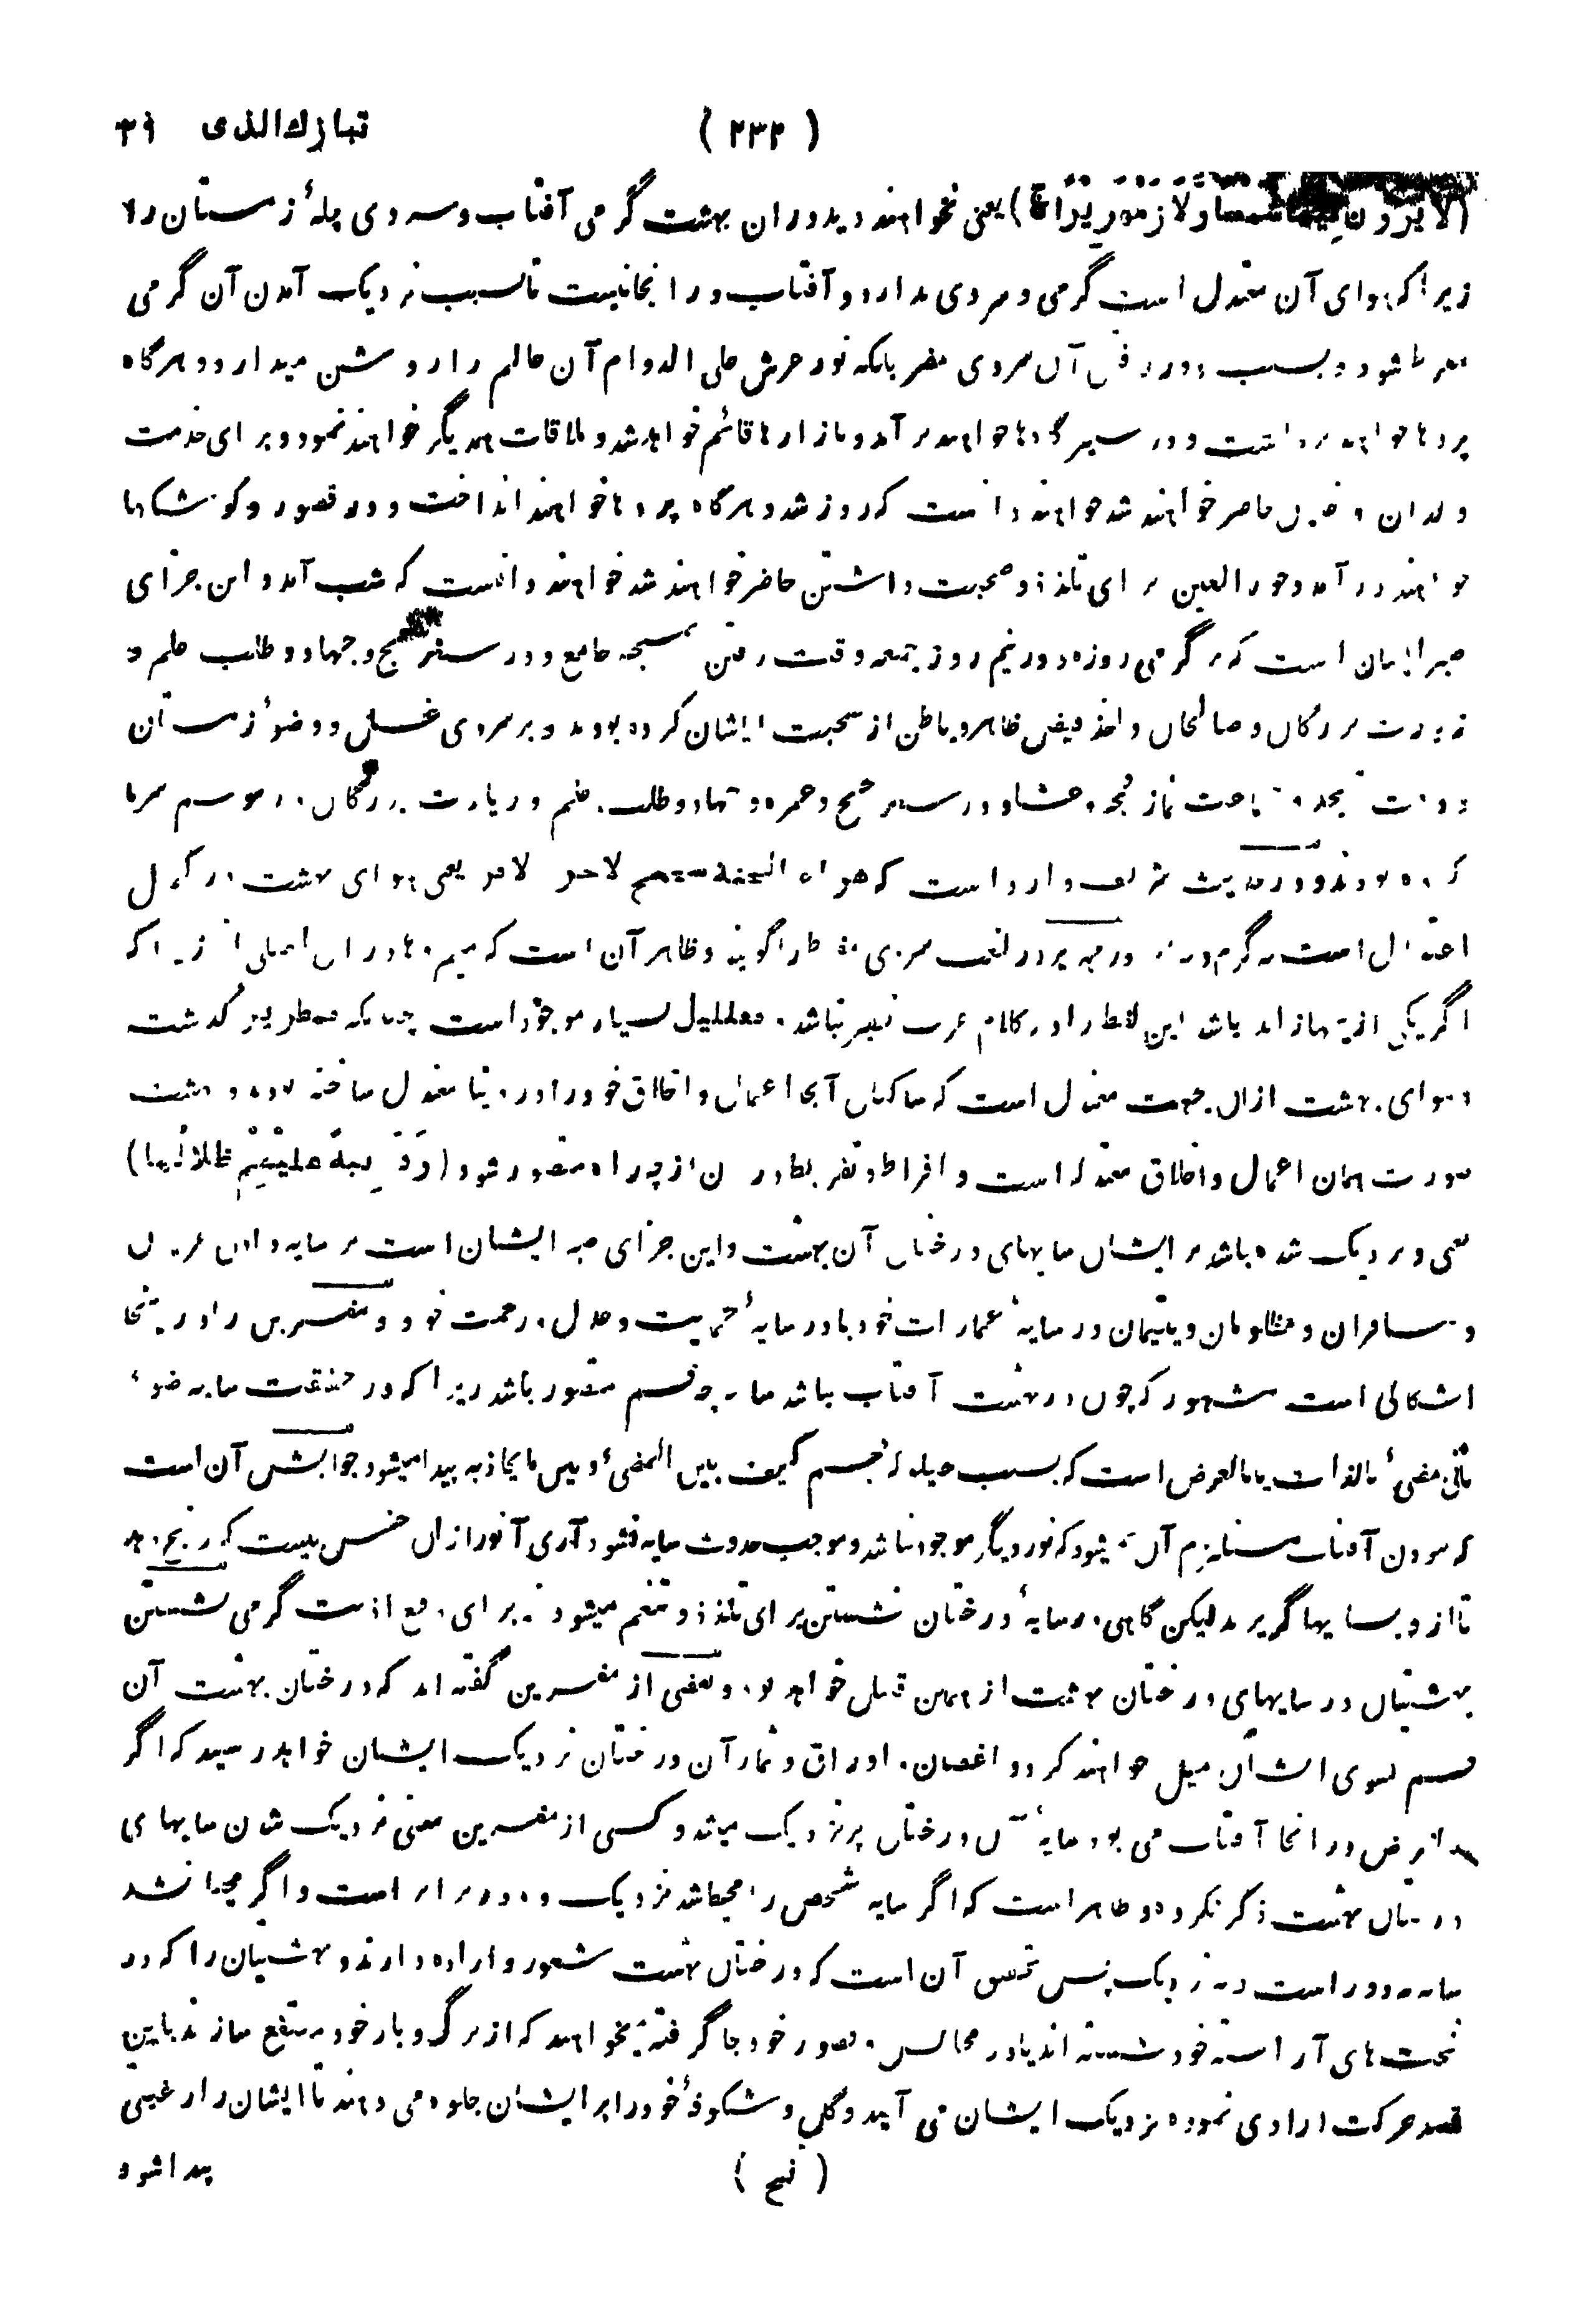 تبارك الذى ۲۹ (۲۳۲)
(لا يرون فيها شمسا ولا زمهريرا) یعنی نخواهند دید در ان بهشت گرمی آفتاب و سردی پلهٔ زمستان را
زیرا که هوای آن معتدل است گرمی و سردی ندارد و آفتاب در انجا نیست تا بسبب نزدیک آمدن آن گرمی
مفرط شود و بسبب دور رفتن آن سردی مفرط بلکه نور عرش علی الدوام آن عالم را روشن میدارد و هرگاه
پردها خواهند برداشت و در سیرگاهها خواهند برآمد و بازارها قائم خواهد شد و ملاقات همدیگر خواهند نمود و برای خدمت
ولدان و خدم حاضر خواهند شد خواهند دانست که روز شد و هرگاه پردها خواهند انداخت و در قصور و کوشکها
خواهند درآمد و حور العین برای تلذذ و صحبت داشتن حاضر خواهند شد خواهند دانست که شب آمد و این جزای
صبر ایشان است که بر گرمی روزه و در نیم روز جمعه وقت رفتن بمسجد جامع و در سفر حج و جهاد و طلب علم و
زیارت بزرگان و صالحان و اخذ فیض ظاهر و باطن از صحبت ایشان کرده بودند و بر سردی غسل و وضوٴ زمستان
و وقت تهجد و جماعت نماز فجر و عشا و در سفر حج و عمره و جهاد و طلب علم و زیارت بزرگان در موسم سرما
کرده بودند و در حدیث شریف وارد است که هواء الجنة سجسج لا حر و لا قر یعنی هوای بهشت در کمال
اعتدال است نه گرم و نه سرد و زمهریر در لغت سردی مفرط را گویند و ظاهر آن است که میم و ها در ان اصلی اند زیرا که
اگر یکی ازینها زاید باشد این لفظ را در کلام عرب نظیر نباشد و فعللیل بسیار موجود است چنانکه قمطریر گذشت
و هوای بهشت ازان جهت معتدل است که ساکنان آنجا اعمال و اخلاق خود را در دنیا معتدل ساخته بودند و بهشت
صورت همان اعمال و اخلاق معتدله است و افراط و تفریط در ان از چه راه متصور شود (و دانية عليهم ظلالها)
یعنی و نزدیک شده باشد بر ایشان سایهای درختان آن بهشت و این جزای صبر ایشان است بر سایه دادن غریبان
و مسافران و مظلومان و یتیمان در سایهٔ عمارات خود یا در سایهٔ حمایت و عدل و رحمت خود و مفسرین را درینجا
اشکالی است مشهور که چون در بهشت آفتاب نباشد سایه چه قسم متصور باشد زیرا که در حقیقت سایه ضوء
ثانی مضیٔ بالذات یا بالعرض است که بسبب حیلولهٔ جسم کثیف بین المضیٔ و بین ما یحاذیه پیدا میشود جوابش آن است
که نبودن آفتاب مستلزم آن نمیشود که نور دیگر موجود نباشد و موجب حدوث سایه نشود آری آن نور ازان جنس نیست که رنج دهد
تا از و بسایها گریزند لیکن گاهی در سایهٔ درختان نشستن برای تلذذ و تنعم میشود نه برای دفع اذیت گرمی نشستن
بهشتیان در سایهای درختان بهشت از همین قبیل خواهد بود و بعضی از مفسرین گفته اند که درختان بهشت آن
قسم بسوی ایشان میل خواهند کرد و اغصان و اوراق و ثمار آن درختان نزدیک ایشان خواهد رسید که اگر
بالفرض در انجا آفتاب می بود سایهٔ آن درختان پر نزدیک میشد و کسی از مفسرین معنی نزدیک شدن سایهای
درختان بهشت ذکر نکرده و ظاهر است که اگر سایه شخص را محیط باشد نزدیک و دور برابر است و اگر محیط نباشد
سایه دور است نه نزدیک پس تحقیق آن است که درختان بهشت شعور و اراده دارند و بهشتیان را که در
تخت های آراسته خود نشسته اند یا در مجالس و قصور خود جا گرفته میخواهند که از برگ و بار خود منتفع سازند باین
قصد حرکت ارادی نموده نزدیک ایشان می آیند و گل و شکوفهٔ خود را بر ایشان جلوه می دهند تا ایشان را رغبتی
(فتح) پیدا شود